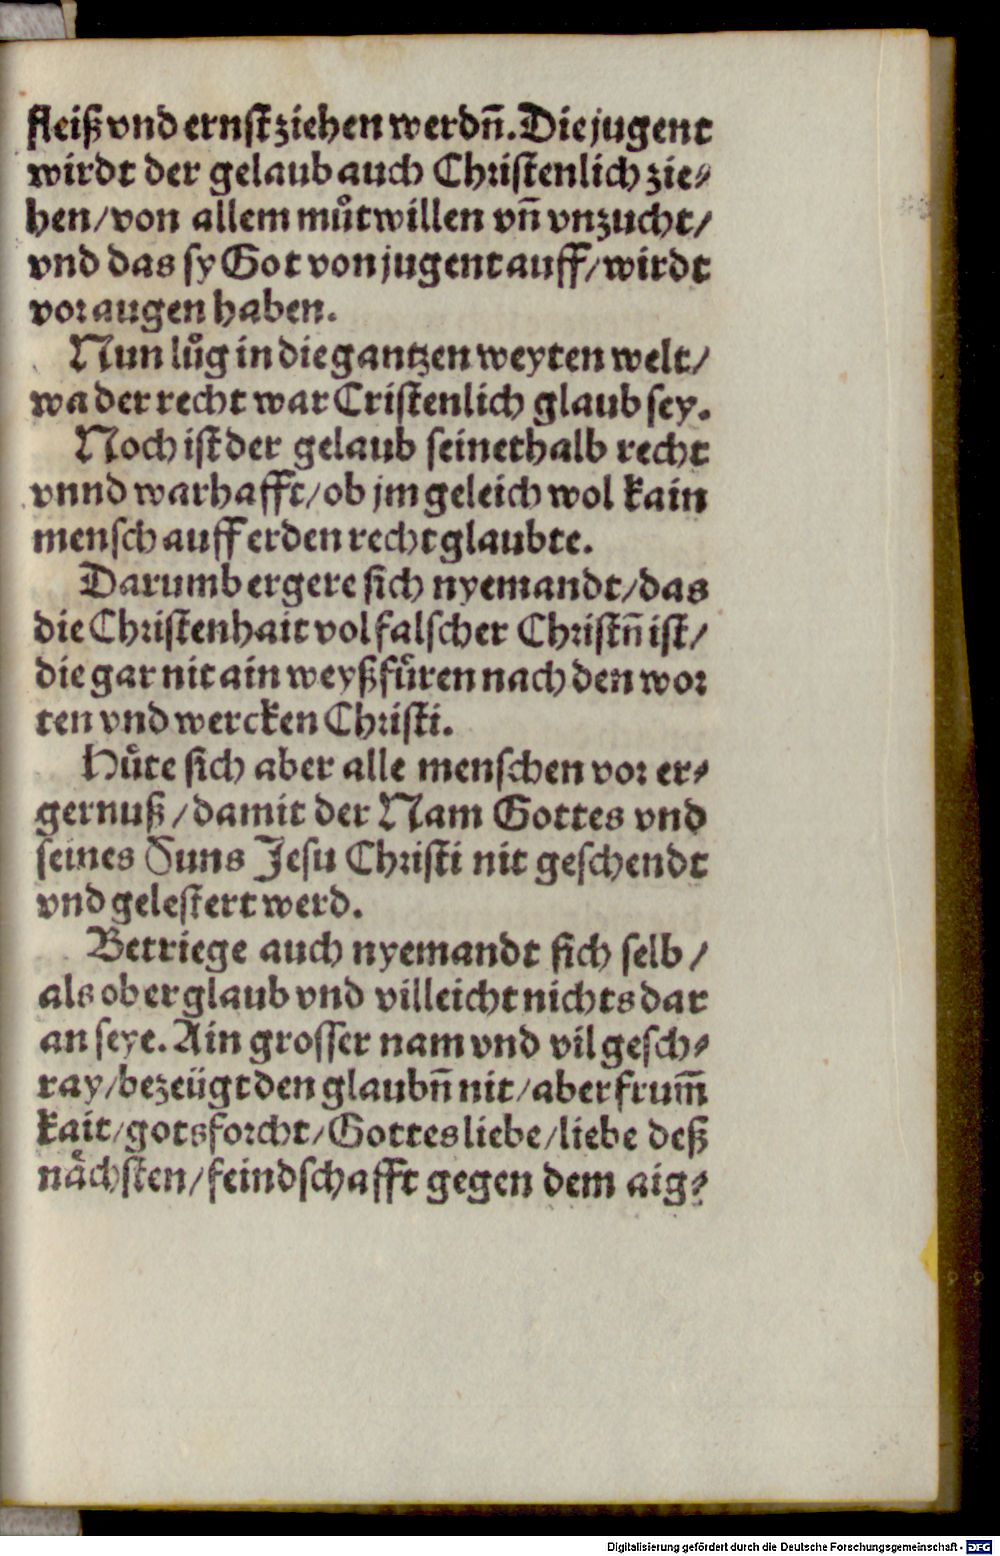 fleiß vnd ernst ziehen werdn̄. Die jugent
wirdt der gelaub auch Christenlich zie⸗
hen/ von allem muͦtwillen vn̄ vnzucht/
vnd das sy Got von jugent auff/ wirdt
vor augen haben.
Nun luͦg in die gantzen weyten welt/
wa der recht war Cristenlich glaub sey.
Noch ist der gelaub seinethalb recht
vnnd warhafft/ ob jm geleich wol kain
mensch auff erden recht glaubte.
Darumb ergere sich nyemandt/ das
die Christenhait vol falscher Christn̄ ist/
die gar nit ain weyß fuͤren nach den wor
ten vnd wercken Christi.
Huͤte sich aber alle menschen vor er⸗
gernuß/ damit der Nam Gottes vnd
seines Suns Jesu Christi nit geschendt
vnd gelestert werd.
Betriege auch nyemandt sich selb/
als ob er glaub vnd villeicht nichts dar
an seye. Ain grosser nam vnd vil gesch⸗
ray/ bezeügt den glaubn̄ nit/ aber frum̄
kait/ gotsforcht/ Gottes liebe/ liebe deß
naͤchsten/ feindschafft gegen dem aig⸗
Digitalisierung gefördert durch die Deutsche Forschungsgemeinschaft - DFG